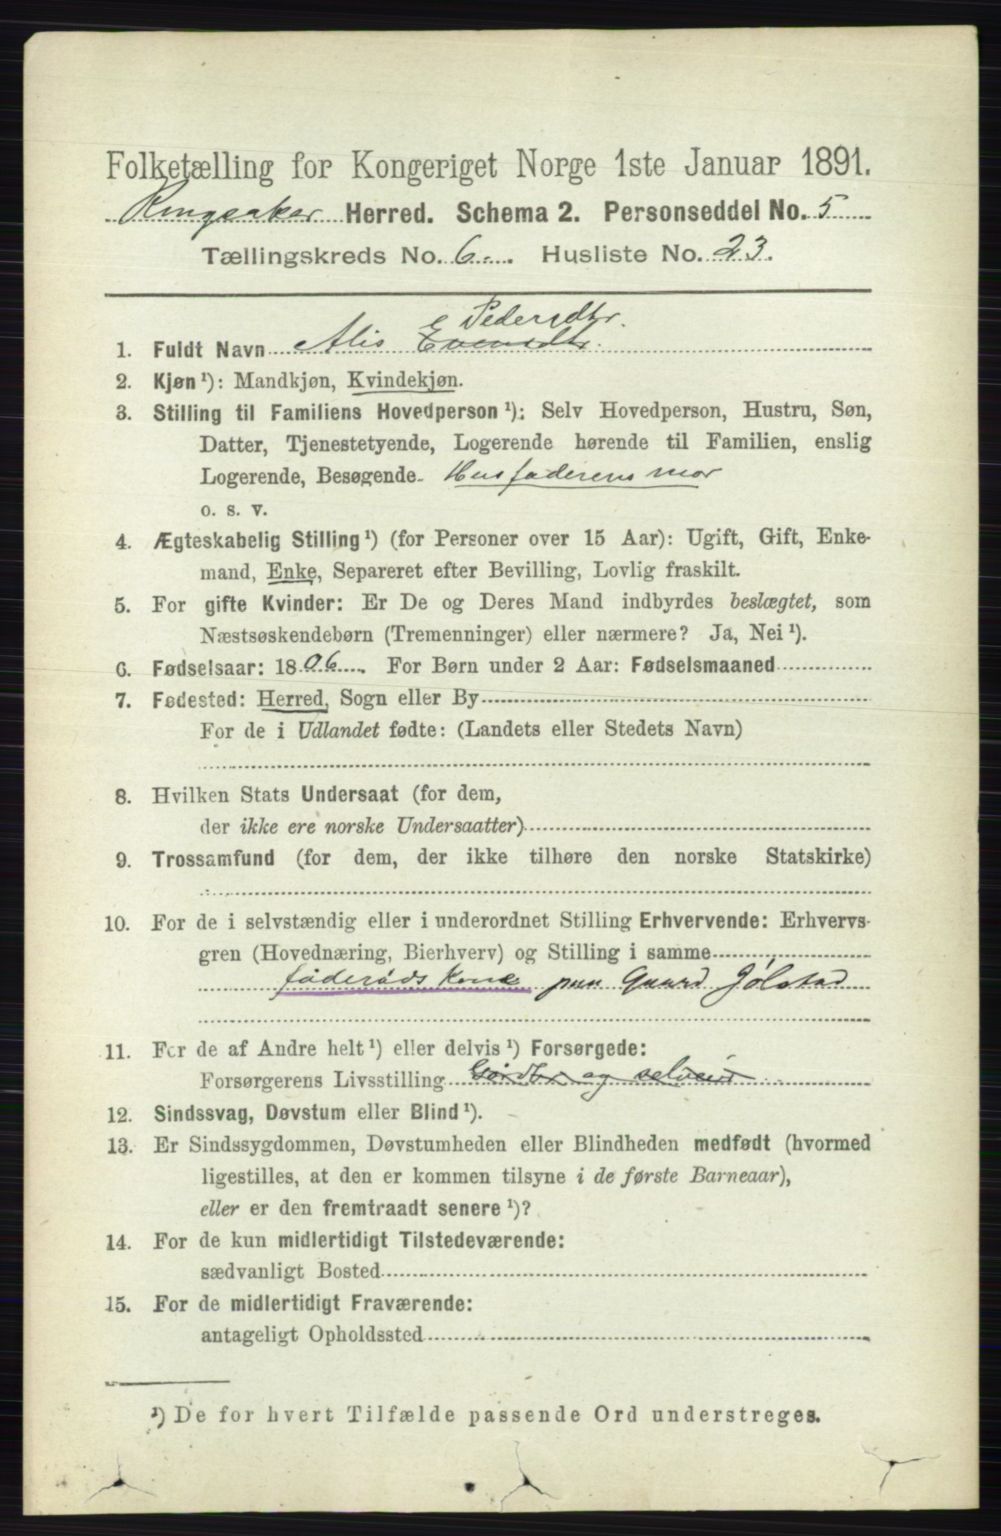 Folketælling for Kongeriget Norge 1ste Januar 1891.
Ringsaker Herred. Schema 2. Personseddel No. 5
Tællingskreds No. 6. Husliste No. 23.
Pedersdtr.
1. Fuldt Navn Alis Evensdtr.
2. Kjøn ¹): Mandkjøn, Kvindekjøn.
3. Stilling til Familiens Hovedperson ¹): Selv Hovedperson, Hustru, Søn,
Datter, Tjenestetyende, Logerende hørende til Familien, enslig
Logerende, Besøgende Husfaderens mor
o. s. v.
4. Ægteskabelig Stilling ¹) (for Personer over 15 Aar): Ugift, Gift, Enke-
mand, Enke, Separeret efter Bevilling, Lovlig fraskilt.
5. For gifte Kvinder: Er De og Deres Mand indbyrdes beslægtet, som
Næstsøskendebørn (Tremenninger) eller nærmere? Ja, Nei ¹).
6. Fødselsaar: 1806. For Børn under 2 Aar: Fødselsmaaned
7. Fødested: Herred, Sogn eller By
For de i Udlandet fødte: (Landets eller Stedets Navn)
8. Hvilken Stats Undersaat (for dem,
der ikke ere norske Undersaatter)
9. Trossamfund (for dem, der ikke tilhøre den norske Statskirke)
10. For de i selvstændig eller i underordnet Stilling Erhvervende: Erhvervs-
gren (Hovednæring, Bierhverv) og Stilling i samme
føderåds kone paa Gaard Jølstad
11. For de af Andre helt ¹) eller delvis ¹) Forsørgede:
Forsørgerens Livsstilling Gårdbr og selveier
12. Sindssvag, Døvstum eller Blind ¹).
13. Er Sindssygdommen, Døvstumheden eller Blindheden medfødt (hvormed
ligestilles, at den er kommen tilsyne i de første Barneaar),
eller er den fremtraadt senere ¹)?
14. For de kun midlertidigt Tilstedeværende:
sædvanligt Bosted
15. For de midlertidigt Fraværende:
antageligt Opholdssted
¹) De for hvert Tilfælde passende Ord understreges.